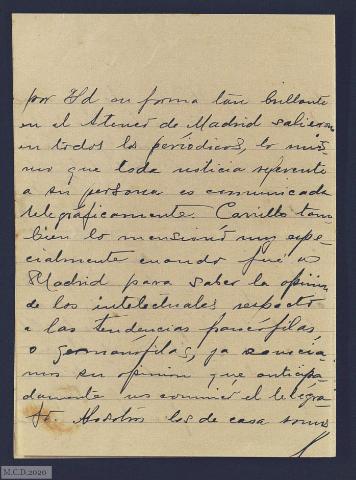 por Ud en forma tan brillante
en el Ateneo de Madrid salieron
en todos los periódicos, lo mis
mo que toda noticia referente
a su persona es comunicada
telegráficamente. Carrillo tam
bien lo mensionó muy espe
cialmente cuando fué a
Madrid para saber la opinión
de los intelectuales respecto
a las tendencias francófilas
o germanófilas, ya conocía
mos su opinion que anticipa
damente nos comunicó el telégra
fo. Nosotros los de casa somos
M.C.D. 2020